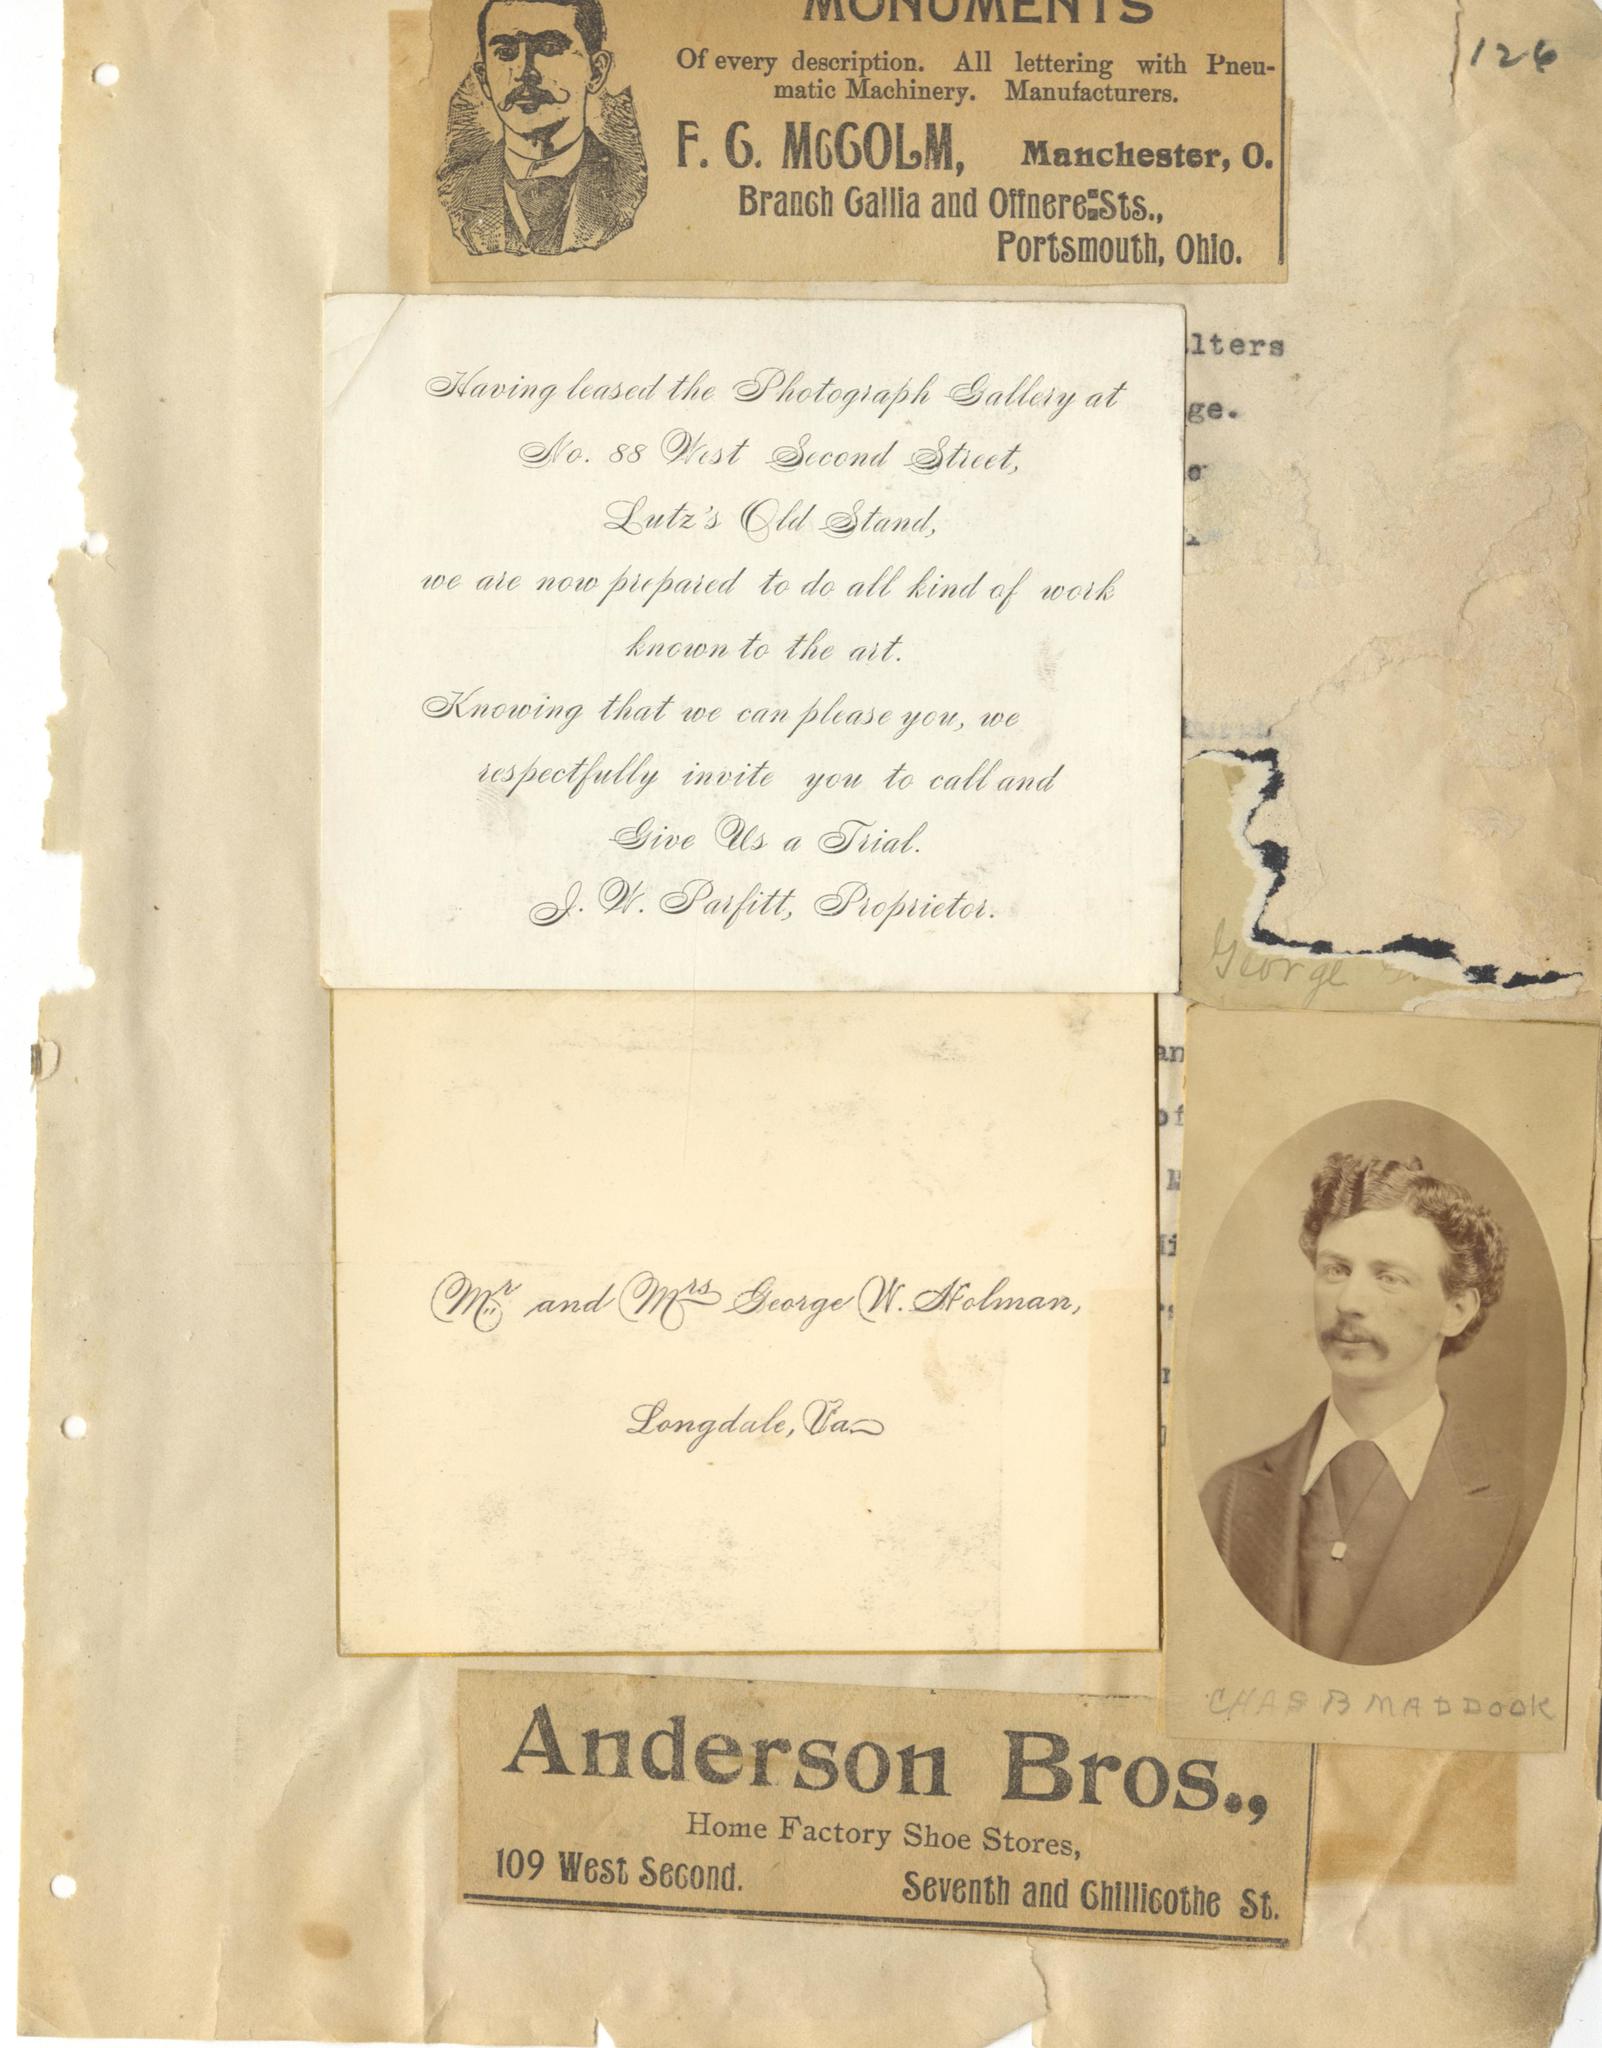 MONUMENTS
Of every description. All lettering with Pneu-
matic Machinery. Manufacturers.
F. G. McGOLM, Manchester, O.
Branch Gallia and Offnere Sts.,
Portsmouth, Ohio.
126
Having leased the Photograph Gallery at
No. 88 West Second Street,
Lutz's Old Stand,
we are now prepared to do all kind of work
known to the art.
Knowing that we can please you, we
respectfully invite you to call and
Give Us a Trial.
J. W. Parfitt, Proprietor.
lters
ge.
George
Mr. and Mrs George W. Holman,
Longdale, Va
an
of
CHAS B MADDOOK
Anderson Bros.,
Home Factory Shoe Stores,
109 West Second. Seventh and Chillicothe St.